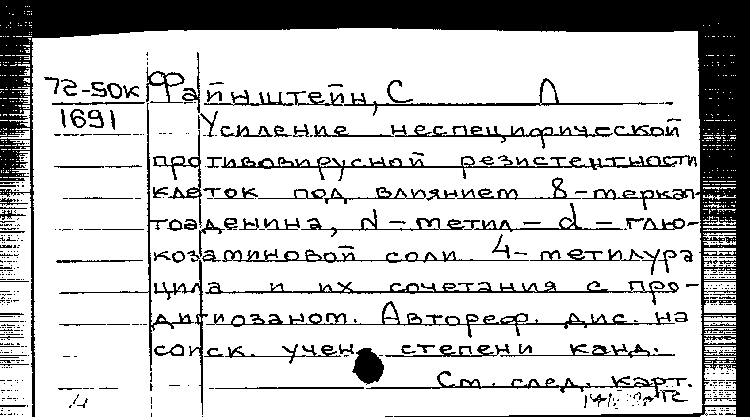 72-50к Файнштейн, С Л
1691 Усиление неспецифической
противовирусной резистентности
клеток под влиянием 8-меркап-
тоаденина, N-метил-d-глю-
козаминовой соли 4-метилура
цила и их сочетания с про-
дигиозаном. Автореф. дис. на
соиск. учен. степени канд.
См. след. карт.